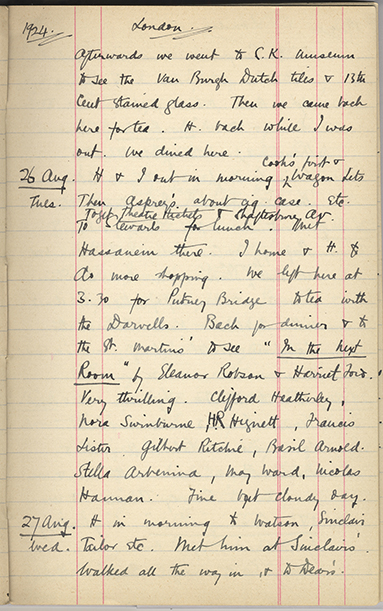 1924. London.
Afterwards we went to S.K. Museum
to see the Van Burgh Dutch tiles & 13th
Cent stained glass. Then we came back
here for tea. H. back while I was
out. We dined here.
Cook's first &
26 Aug. H & I out in morning Wagon Lits
Tues. Then Asprey's. about cig. case. Etc.
To get Theatre tickets & Shaftesbury Av.
To Stewarts for lunch. Met
Hassanein there. I home & H. to
do more shopping. We left here at
3.30 for Putney Bridge to tea with
the Darvells. Back for dinner & to
the St. Martins' to see "In the next
Room" by Eleanor Robson & Harriet Ford.
Very thrilling. Clifford Heatherley,
Nora Swinburne, HR Hignett, Francis
Lister. Gilbert Ritchie, Basil Arnold.
Stella Arbenina, May Ward, Nicolas
Hannan. Fine but cloudy day.
27 Aug. H in morning to Watson, Sinclair
Wed. Tailor etc. Met him at Sinclairs'.
Walked all the way in, & to Dears'.